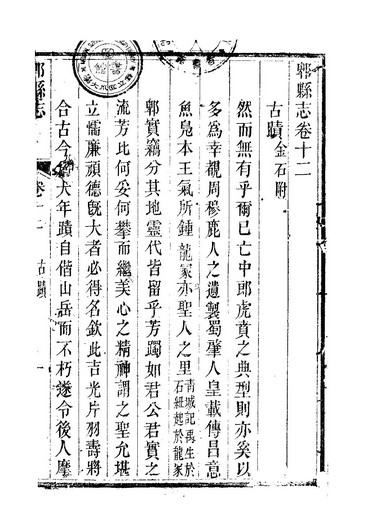 郫縣志卷十二
古蹟金石附
然而無有乎爾已亡中郎虎賁之典型則亦奚以
多為幸覩周穆鹿人之遺製蜀肇人皇載傳昌意
魚鳧本王氣所鍾龍冢亦聖人之里青城記禹生於石紐起於龍冢
郫實竊分其地靈代皆留乎芳躅如君公君實之
流芳比何妥何攀而繼美心之精神謂之聖允堪
立懦廉頑德旣大者必得名欽此吉光片羽壽將
合古今大年蹟自偕山岳而不朽遂令後人摩
郫縣志 卷十二 古蹟 一